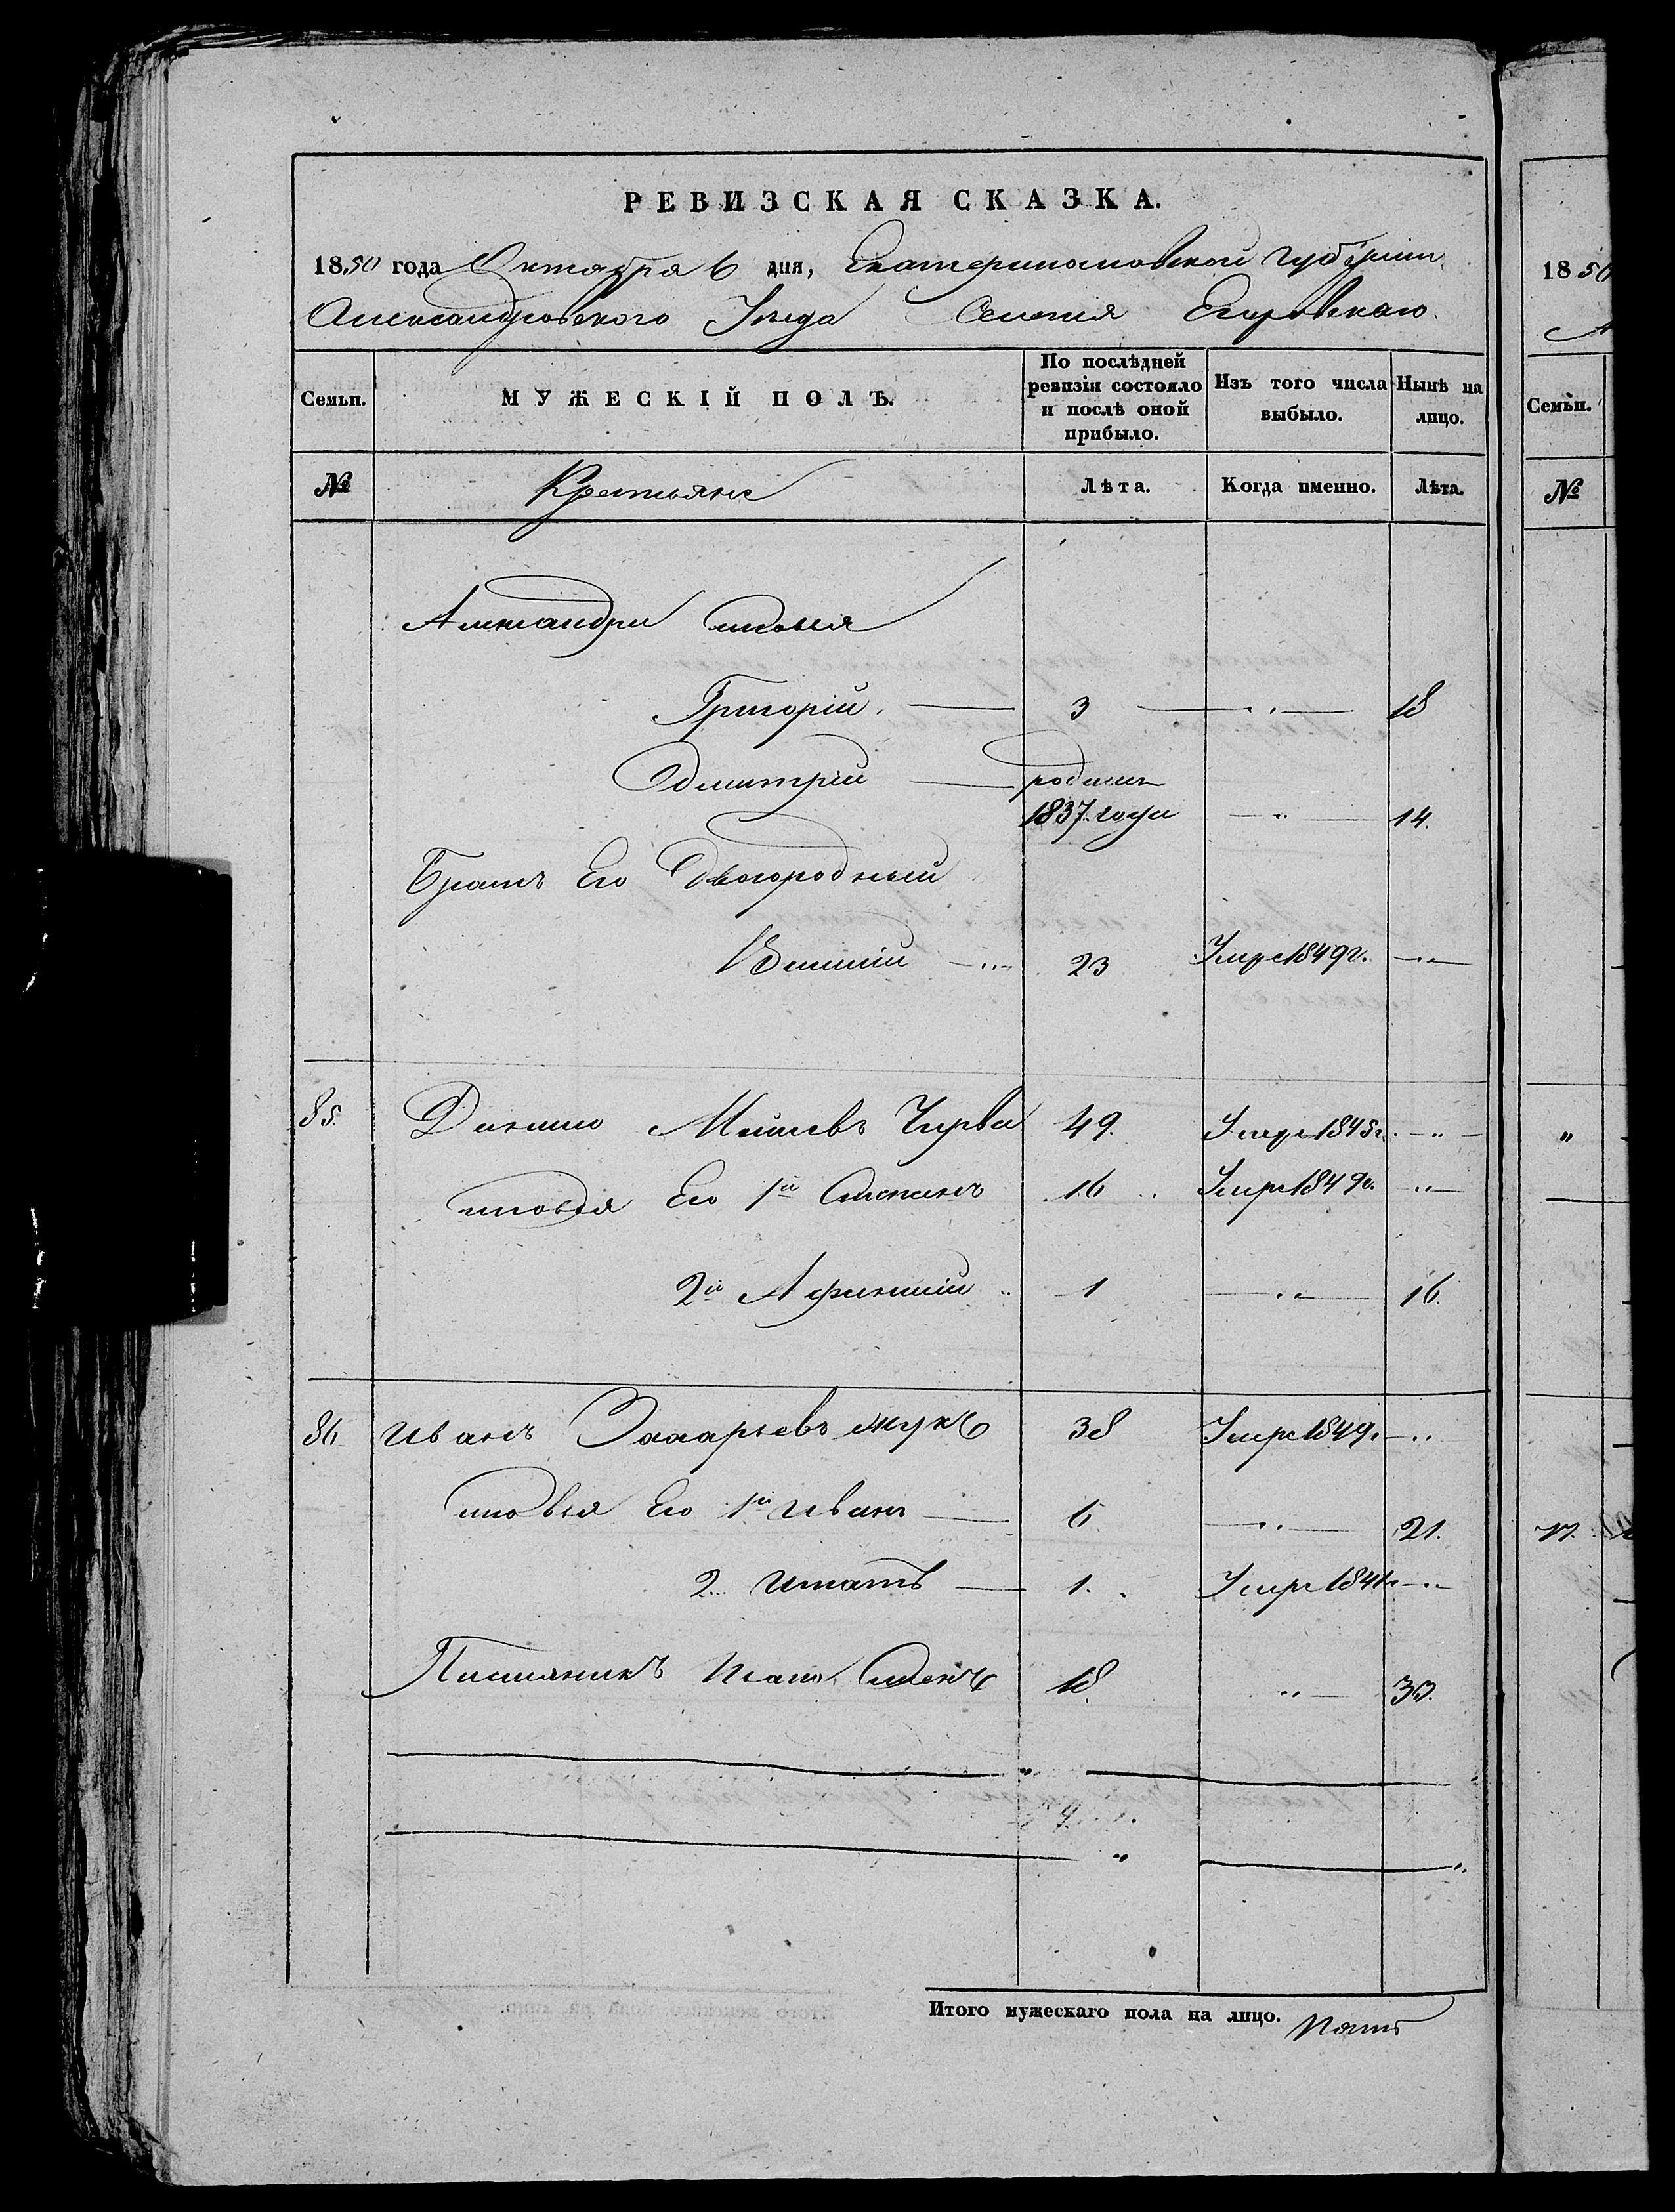 РЕВИЗСКАЯ СКАЗКА.
1850 года Октября 6 дня, Екатеринославской губерніи
Александровского Уезда Селенія Егоровкаго.
Семьи. МУЖЕСКІЙ ПОЛЪ. По послѣдней ревизіи состояло и послѣ оной прибыло. Изъ того числа выбыло. Нынѣ на лицо.
№ Крестьяне Лѣта. Когда именно. Лѣта.
Александра сыновья
Григорій 3 18
Дмитрій родился
1837 года 14.
Братъ Его Двоюродный
23 Умре 1849 г.
85. Мойсеевъ Чирва 49. Умре 1845 г.
сыновья Его 1й Степанъ 16 Умре 1849 г.
2й Афанасій 1 16.
86 Иванъ Захарьевъ 38 Умре 1849.
сыновья Его 1й Иванъ 6 21.
2 Игнатъ 1. Умре 1841
Племяникъ 18. 33.
Итого мужескаго пола на лицо. Пять
1850
Семьи.
№